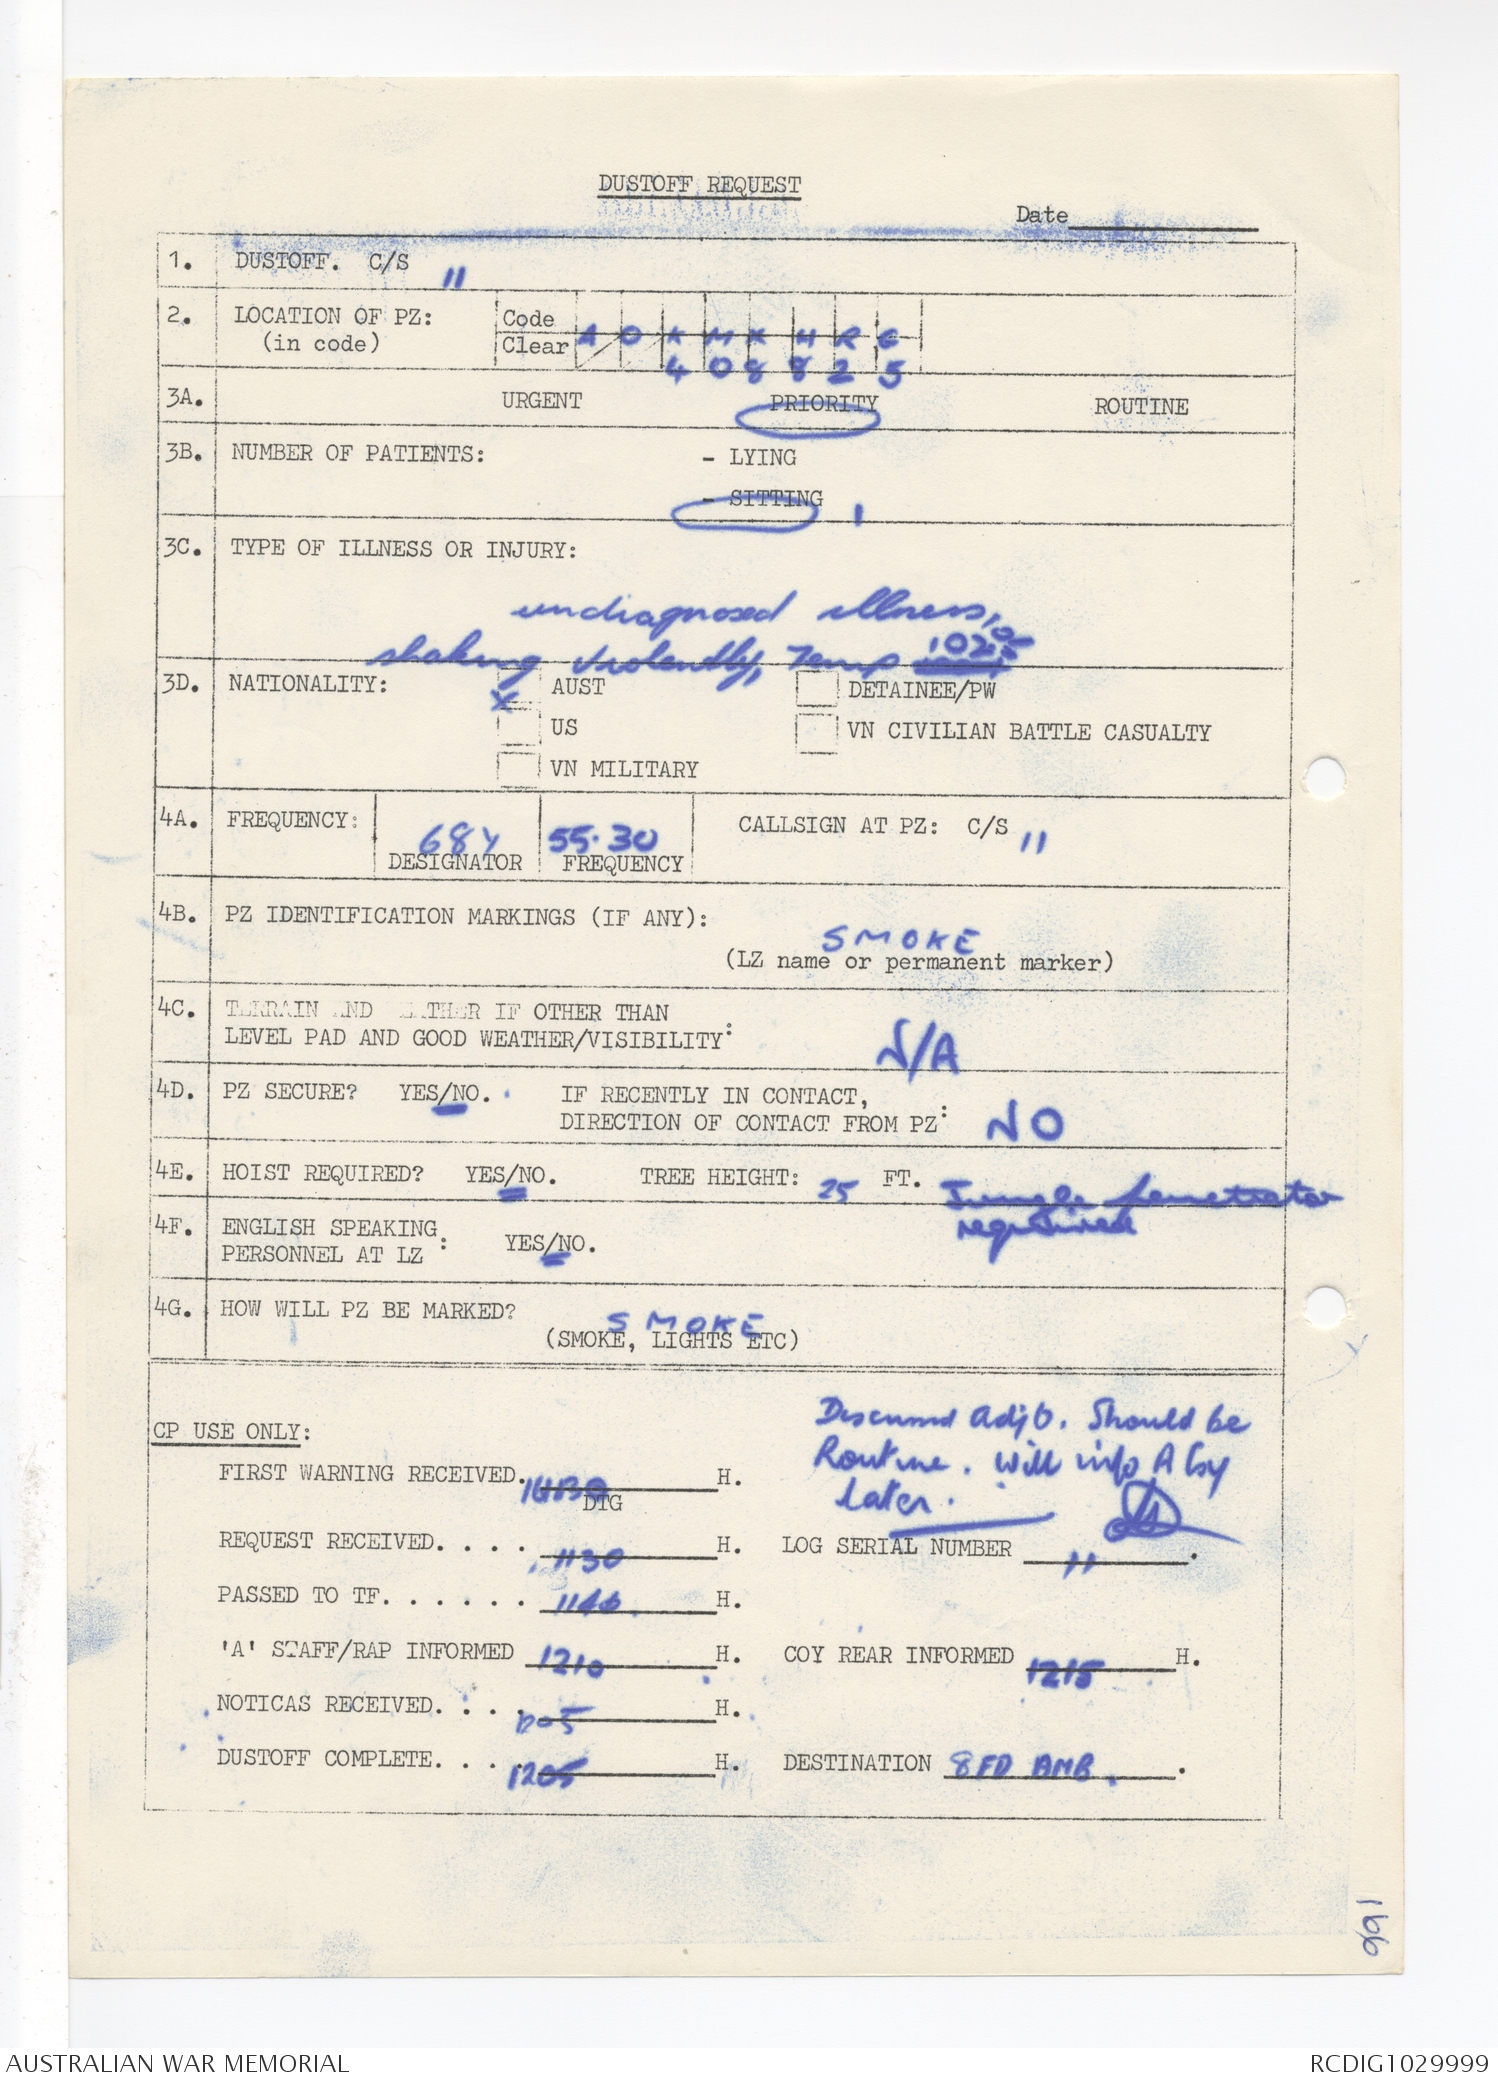 DUSTOFF REQUEST
Date
1. DUSTOFF. C/S 11
2. LOCATION OF PZ: Code A O K M K H R G
(in code) Clear 4 0 8 8 2 5
3A. URGENT PRIORITY ROUTINE
3B. NUMBER OF PATIENTS: - LYING
- SITTING 1
3C. TYPE OF ILLNESS OR INJURY:
undiagnosed illness,
shaking violently, Temp 102
3D. NATIONALITY: X AUST DETAINEE/PW
US VN CIVILIAN BATTLE CASUALTY
VN MILITARY
4A. FREQUENCY: 68Y 55.30 CALLSIGN AT PZ: C/S 11
DESIGNATOR FREQUENCY
4B. PZ IDENTIFICATION MARKINGS (IF ANY):
SMOKE
(LZ name or permanent marker)
4C. TERRAIN AND WEATHER IF OTHER THAN
LEVEL PAD AND GOOD WEATHER/VISIBILITY: N/A
4D. PZ SECURE? YES/NO. IF RECENTLY IN CONTACT,
DIRECTION OF CONTACT FROM PZ: NO
4E. HOIST REQUIRED? YES/NO. TREE HEIGHT: 25 FT. Jungle penetrator
required
4F. ENGLISH SPEAKING
PERSONNEL AT LZ : YES/NO.
4G. HOW WILL PZ BE MARKED? SMOKE
(SMOKE, LIGHTS ETC)
CP USE ONLY:
Discussed Adjt. Should be
Routine. Will info A Coy
later.
FIRST WARNING RECEIVED. H.
DTG
REQUEST RECEIVED. . . . 1130 H. LOG SERIAL NUMBER 11.
PASSED TO TF. . . . . . 1146 H.
'A' STAFF/RAP INFORMED 1210 H. COY REAR INFORMED 1215 H.
NOTICAS RECEIVED. . . . 1205 H.
DUSTOFF COMPLETE. . . . 1205 H. DESTINATION 8 FD AMB.
166
AUSTRALIAN WAR MEMORIAL RCDIG1029999